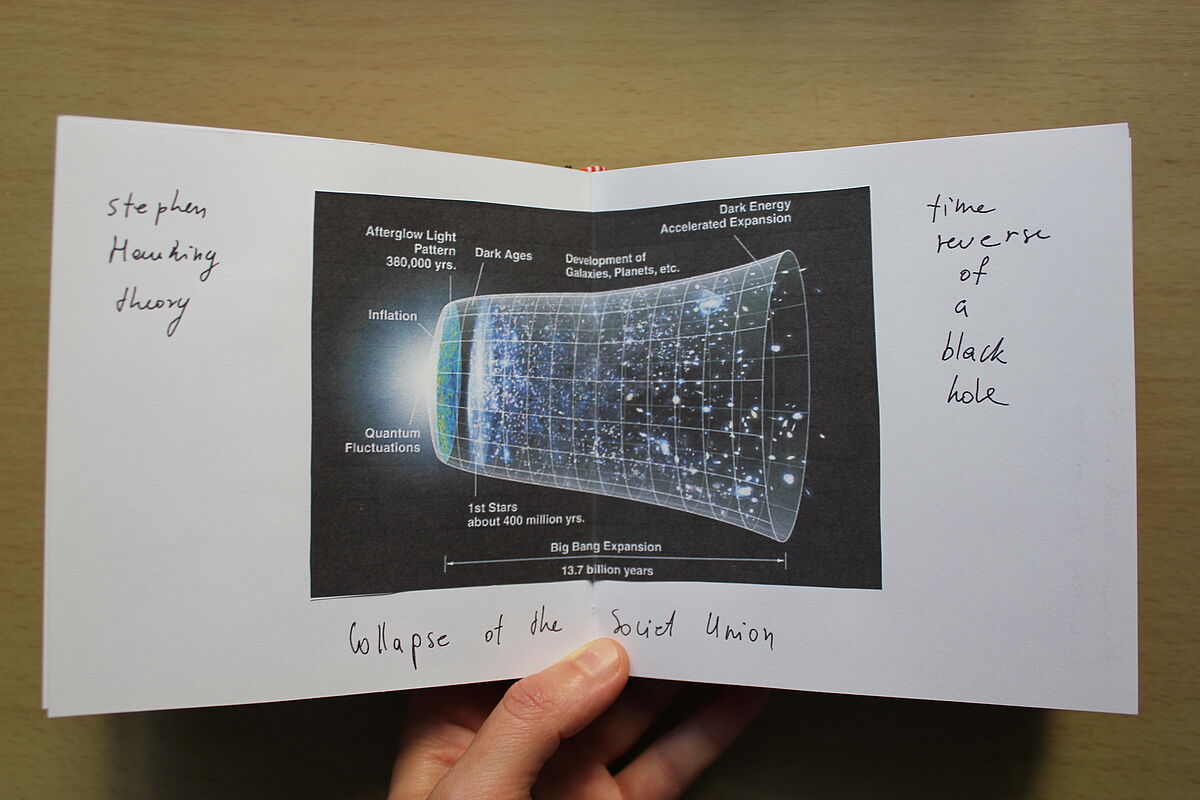 stephen
Hawking
theory
Afterglow Light
Pattern
380,000 yrs.
Dark Ages
Development of
Galaxies, Planets, etc.
Dark Energy
Accelerated Expansion
Inflation
Quantum
Fluctuations
1st Stars
about 400 million yrs.
Big Bang Expansion
13.7 billion years
time
reverse
of
a
black
hole
Collapse of the Soviet Union